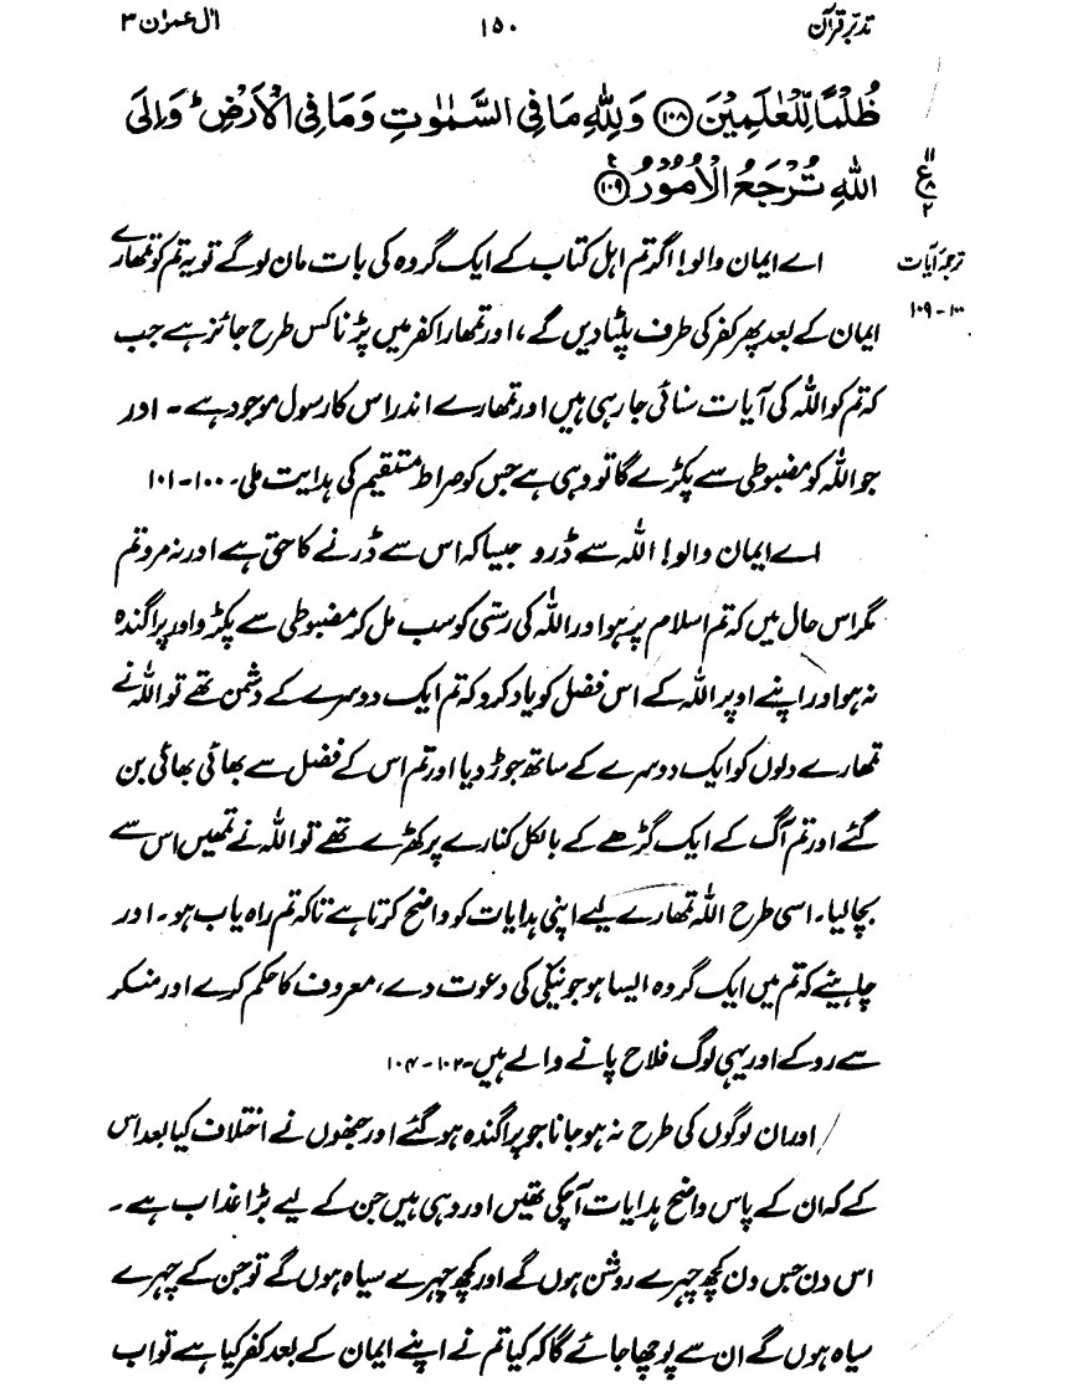 تدبّرِ قرآن ۱۵۰ اٰل عمرٰن ۳
ظُلْمًا لِّلْعٰلَمِیْنَ ﴿۱۰۸﴾ وَلِلّٰہِ مَا فِی السَّمٰوٰتِ وَمَا فِی الْاَرْضِ ؕ وَاِلَی
اللّٰہِ تُرْجَعُ الْاُمُوْرُ ﴿۱۰۹﴾
۱۱
ع
۸
۲
ترجمۂ آیات
۱۰۰-۱۰۹
اے ایمان والو! اگر تم اہل کتاب کے ایک گروہ کی بات مان لو گے تو یہ تم کو تمھارے
ایمان کے بعد پھر کفر کی طرف پلٹا دیں گے، اور تمھارا کفر میں پڑنا کس طرح جائز ہے جب
کہ تم کو اللہ کی آیات سنائی جا رہی ہیں اور تمھارے اندر اس کا رسول موجود ہے۔ اور
جو اللہ کو مضبوطی سے پکڑے گا تو وہی ہے جس کو صراط مستقیم کی ہدایت ملی۔ ۱۰۰-۱۰۱
اے ایمان والو! اللہ سے ڈرو جیسا کہ اس سے ڈرنے کا حق ہے اور نہ مرو تم
مگر اس حال میں کہ تم اسلام پر ہو اور اللہ کی رسّی کو سب مل کر مضبوطی سے پکڑو اور پراگندہ
نہ ہو اور اپنے اوپر اللہ کے اس فضل کو یاد کرو کہ تم ایک دوسرے کے دشمن تھے تو اللہ نے
تمھارے دلوں کو ایک دوسرے کے ساتھ جوڑ دیا اور تم اس کے فضل سے بھائی بھائی بن
گئے اور تم آگ کے ایک گڑھے کے بالکل کنارے پر کھڑے تھے تو اللہ نے تمھیں اس سے
بچا لیا۔ اسی طرح اللہ تمھارے لیے اپنی ہدایات کو واضح کرتا ہے تاکہ تم راہ یاب ہو۔ اور
چاہیئے کہ تم میں ایک گروہ ایسا ہو جو نیکی کی دعوت دے، معروف کا حکم کرے اور منکر
سے روکے اور یہی لوگ فلاح پانے والے ہیں۔ ۱۰۲-۱۰۴
اور ان لوگوں کی طرح نہ ہو جانا جو پراگندہ ہو گئے اور جنھوں نے اختلاف کیا بعد اس
کے کہ ان کے پاس واضح ہدایات آ چکی تھیں اور وہی ہیں جن کے لیے بڑا عذاب ہے۔
اس دن جس دن کچھ چہرے روشن ہوں گے اور کچھ چہرے سیاہ ہوں گے تو جن کے چہرے
سیاہ ہوں گے ان سے پوچھا جائے گا کہ کیا تم نے اپنے ایمان کے بعد کفر کیا ہے تو اب